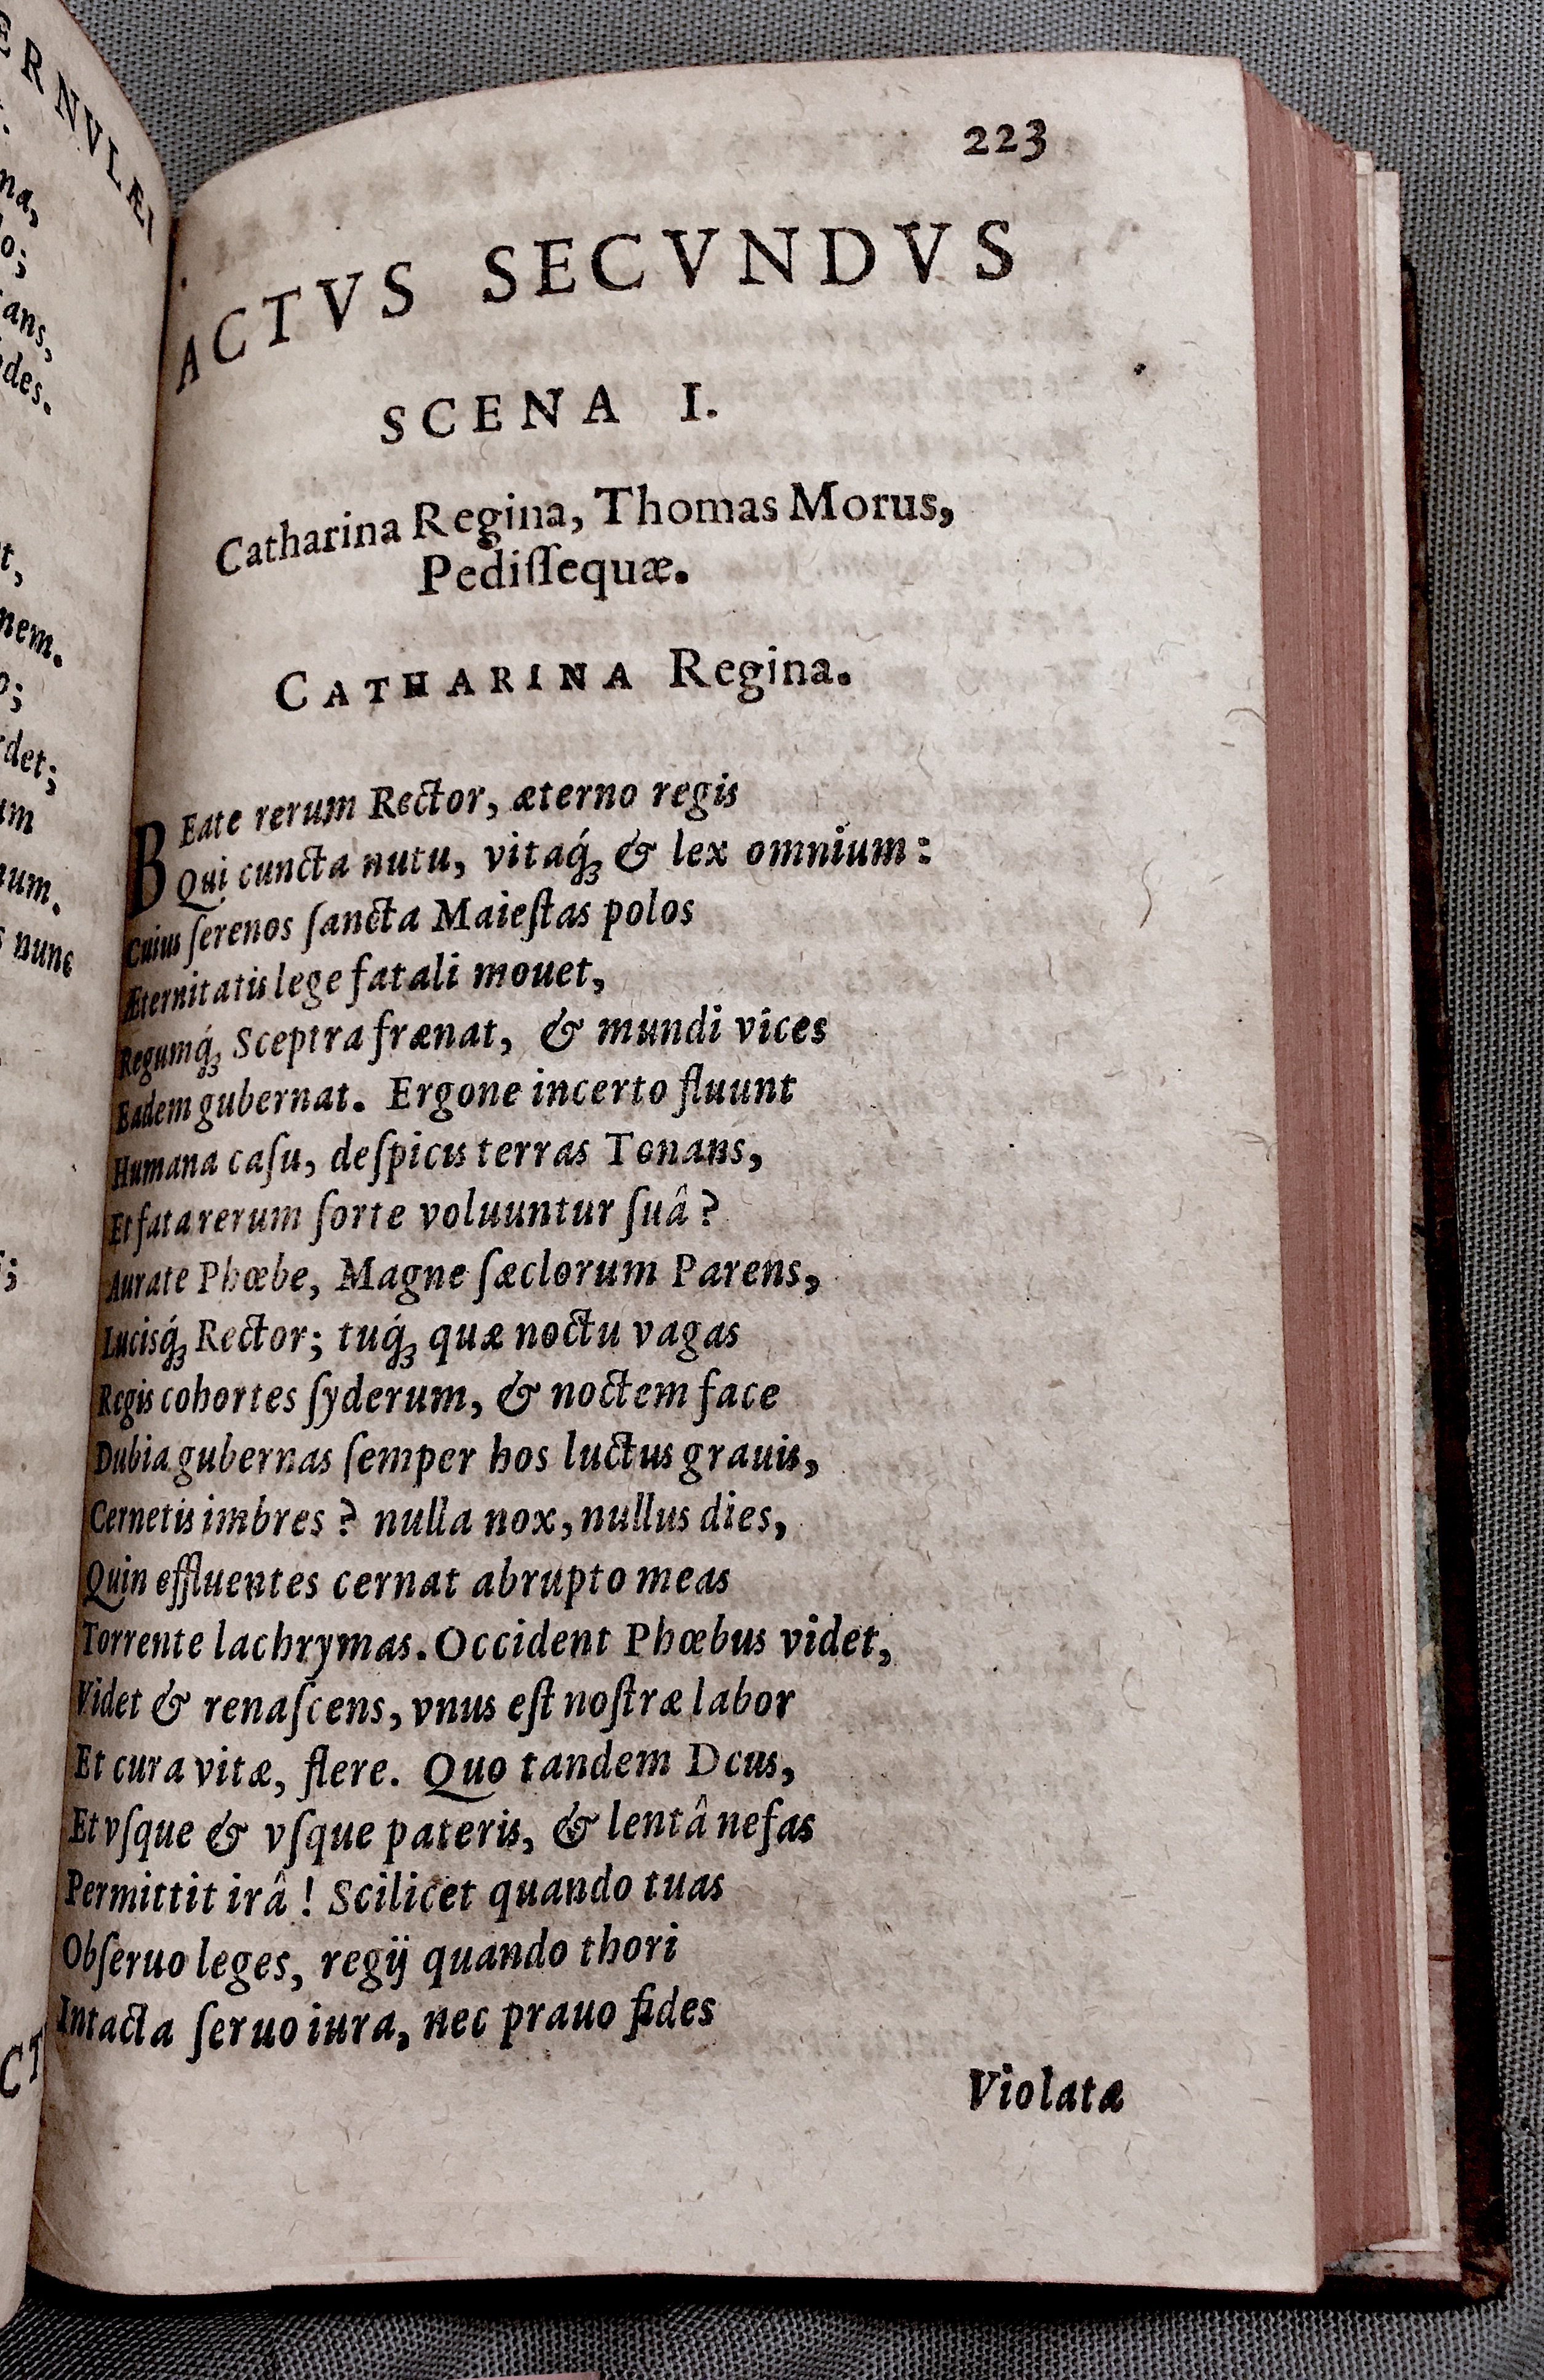 ERNVLÆI
na,
lo;
ans,
des.
t,
nem.
o;
rdet;
um
num.
s nunc
;
CT
223
ACTVS SECVNDVS
SCENA I.
Catharina Regina, Thomas Morus,
Pediſſequæ.
CATHARINA Regina.
BEate rerum Rector, æterno regis
Qui cuncta nutu, vitaq́ꝫ & lex omnium:
Cuius ſerenos ſancta Maieſtas polos
Æternitatis lege fatali mouet,
Regumq́ꝫ Sceptra frænat, & mundi vices
Eadem gubernat. Ergone incerto fluunt
Humana caſu, deſpicis terras Tonans,
Et fata rerum ſorte voluuntur ſuâ?
Aurate Phœbe, Magne ſæclorum Parens,
Lucisq́ꝫ Rector; tuq́ꝫ quæ noctu vagas
Regis cohortes ſyderum, & noctem face
Dubia gubernas ſemper hos luctus grauis,
Cernetis imbres? nulla nox, nullus dies,
Quin effluentes cernat abrupto meas
Torrente lachrymas. Occident Phœbus videt,
Videt & renaſcens, vnus eſt noſtræ labor
Et cura vitæ, flere. Quo tandem Dcus,
Et vſque & vſque pateris, & lentâ nefas
Permittit irâ! Scilicet quando tuas
Obſeruo leges, regij quando thori
Intacta ſeruo iura, nec prauo fides
Violatæ